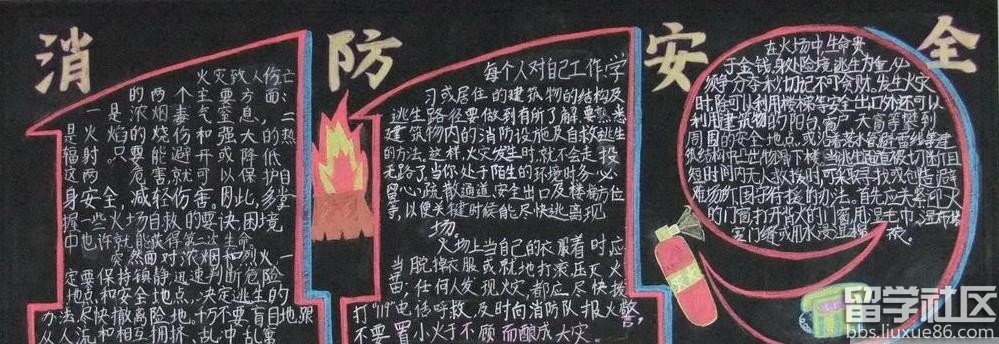 消防安全
火灾致人伤亡
的两个主要方面:
一是浓烟毒气窒息,
是火焰的烧伤和强大的热
辐射。只要能避开或降低
这两危害就可以保护自
身安全,减轻伤害,因此,多掌
握一些火场自救的要诀,困境
中也许就能获得第二次生命。
突然面对浓烟和烈火一
定要保持镇静,迅速判断危险
地点和安全地点,决定逃生的
办法,尽快撤离险地。千万不要盲目地跟
从人流和相互拥挤、乱冲乱窜
每个人对自己工作,学
习或居住的建筑物的结构及
逃生路径要做到有所了解要熟悉
建筑物内的消防设施及自救逃生
的方法,这样,火灾发生时,就不会走投
无路了当你处于陌生的环境时务必
留心疏散通道,安全出口及楼梯方位
等,以便关键时候能尽快逃离现
场。
火场上当自己的衣服着时应
当脱掉衣服或就地打滚压灭火
苗,任何人发现火灾,都应尽快拨
打"119"电话呼救,及时向消防队报火警,
不要置小火于不顾而酿成大灾
在火场中,生命贵
于金钱,身处险境,逃生为重,必
须争分夺秒,切记不可贪财。发生火灾
时,除可以利用楼梯等安全出口外还可以
利用建筑物的阳台,窗户,天窗等攀到
周围的安全地点,或沿着落水管,避雷线等建
筑结构中凸出物滑下楼。当逃生通道被切断且
短时间内无人救援时,可采取寻找或创造避
难场所、固守待援的办法。首先应关紧
的门窗打开背火的门窗用湿毛巾,湿布
门缝或用水浸湿
灭火
留学社区
bbs.liuxue86.com